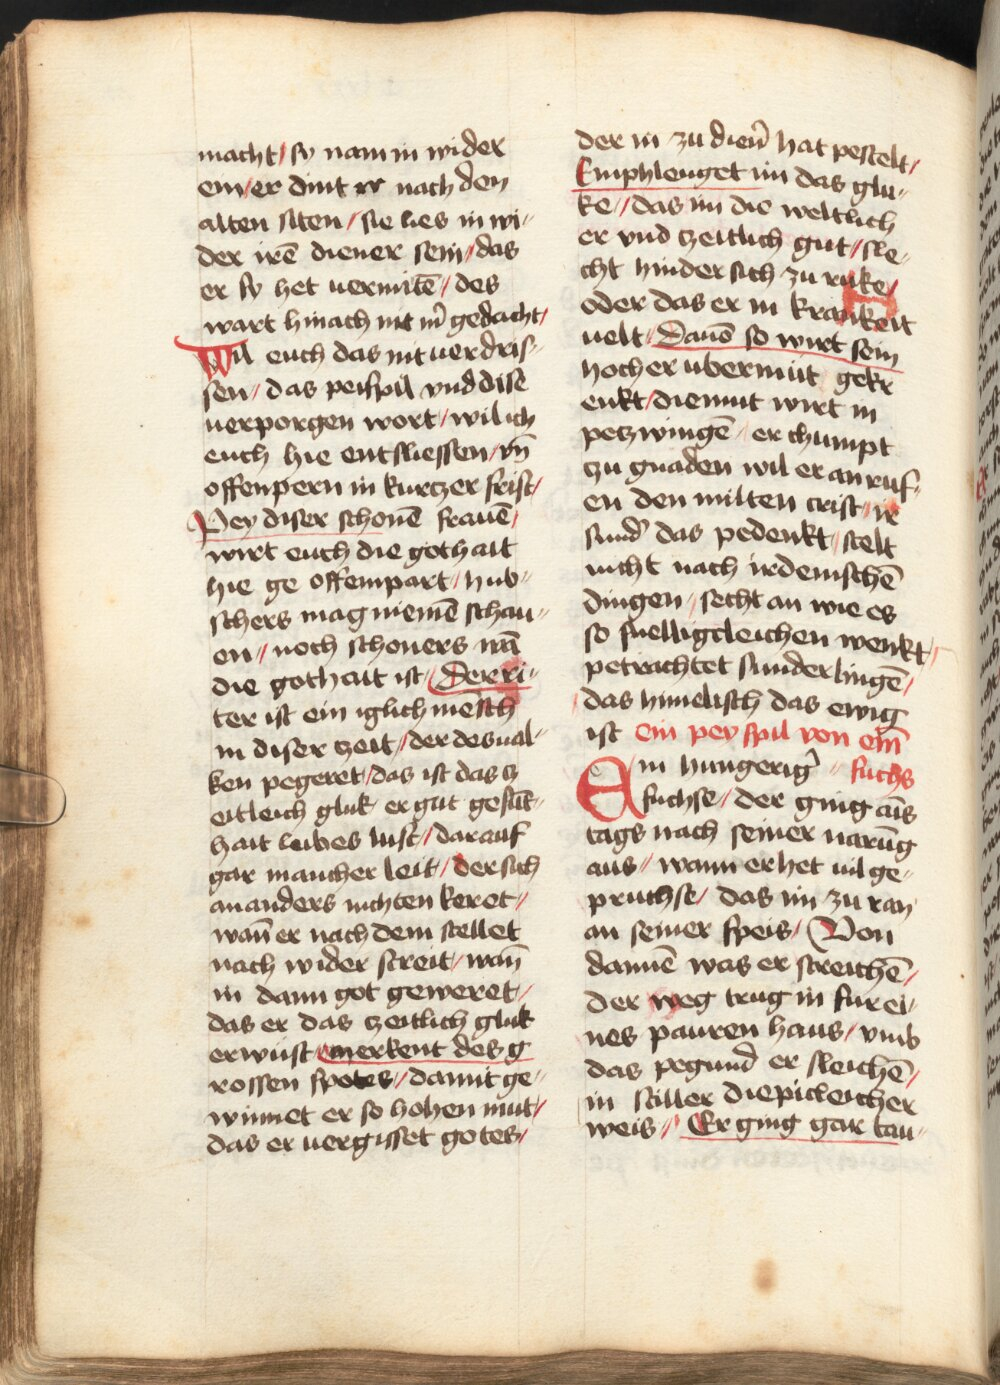 macht / sy nam in wider
ein / er dint ir nach den
alten siten / sie lies in wi-
der irē diener sein / das
er sy het vermitē / des
wart hinach nit m̄ gedacht /
Wil euch das nit verdris-
sen / das peispil vnd dise
verporgen wort / wil ich
euch hie entsliessen / vn̄
offenpern in kurtzer frist /
Pey diser schonē frauē /
wirt euch die gothait
hie ge offempart / hub-
schers mag niemē schau-
en / noch schoners wā
die gothait ist / Der ri-
ter ist ein iglich mēsch
in diser tzeit / der des ual-
ken pegeret / das ist das tz
eitleich gluk er gut gesūt-
hait leibes lust / darauf
gar mancher leit / der sich
an anders nichten keret /
wan̄ er nach dem stellet
nach wider streit / wan̄
in dann got geweret /
das er das tzeitlich gluk
erwust / merkent des g
rossen spotes / damit ge-
winnet er so hohen mut /
das er vergisset gotes /
der in zu dien̄ hat pestelt /
Emphlenget im das glu-
ke / das im die weltlich
er vnd tzeitlich gut / sle-
cht hinder sich zu ruke /
oder das er in krankeit
velt / Dauō so wirt sein
hocher vbermut gekr
enkt / diemut wirt in
petzwingē / er chumpt
tzu gnaden wil er an ruf-
en den milten crist / ir
sund̄ das pedenkt / stelt
nicht nach irdenischē
dingen / secht an wie es
so fuelligcleichen wenkt /
petrachtet sunderlingē /
das himelisch das ewig
ist ein pey spil von eim̄
Ein hungeriḡ fuchs
fuchse / der ging ains
tags nach seiner narūg
aus / wann er het vil ge-
pruchse / das im zu ran
an seiner speis / Von
dannē was er streichē /
der weg trug in fur ei-
nes pauren haus / vmb
das pegund̄ er sleichē /
in stiller diepicleicher
weis / Er ging gar tau-